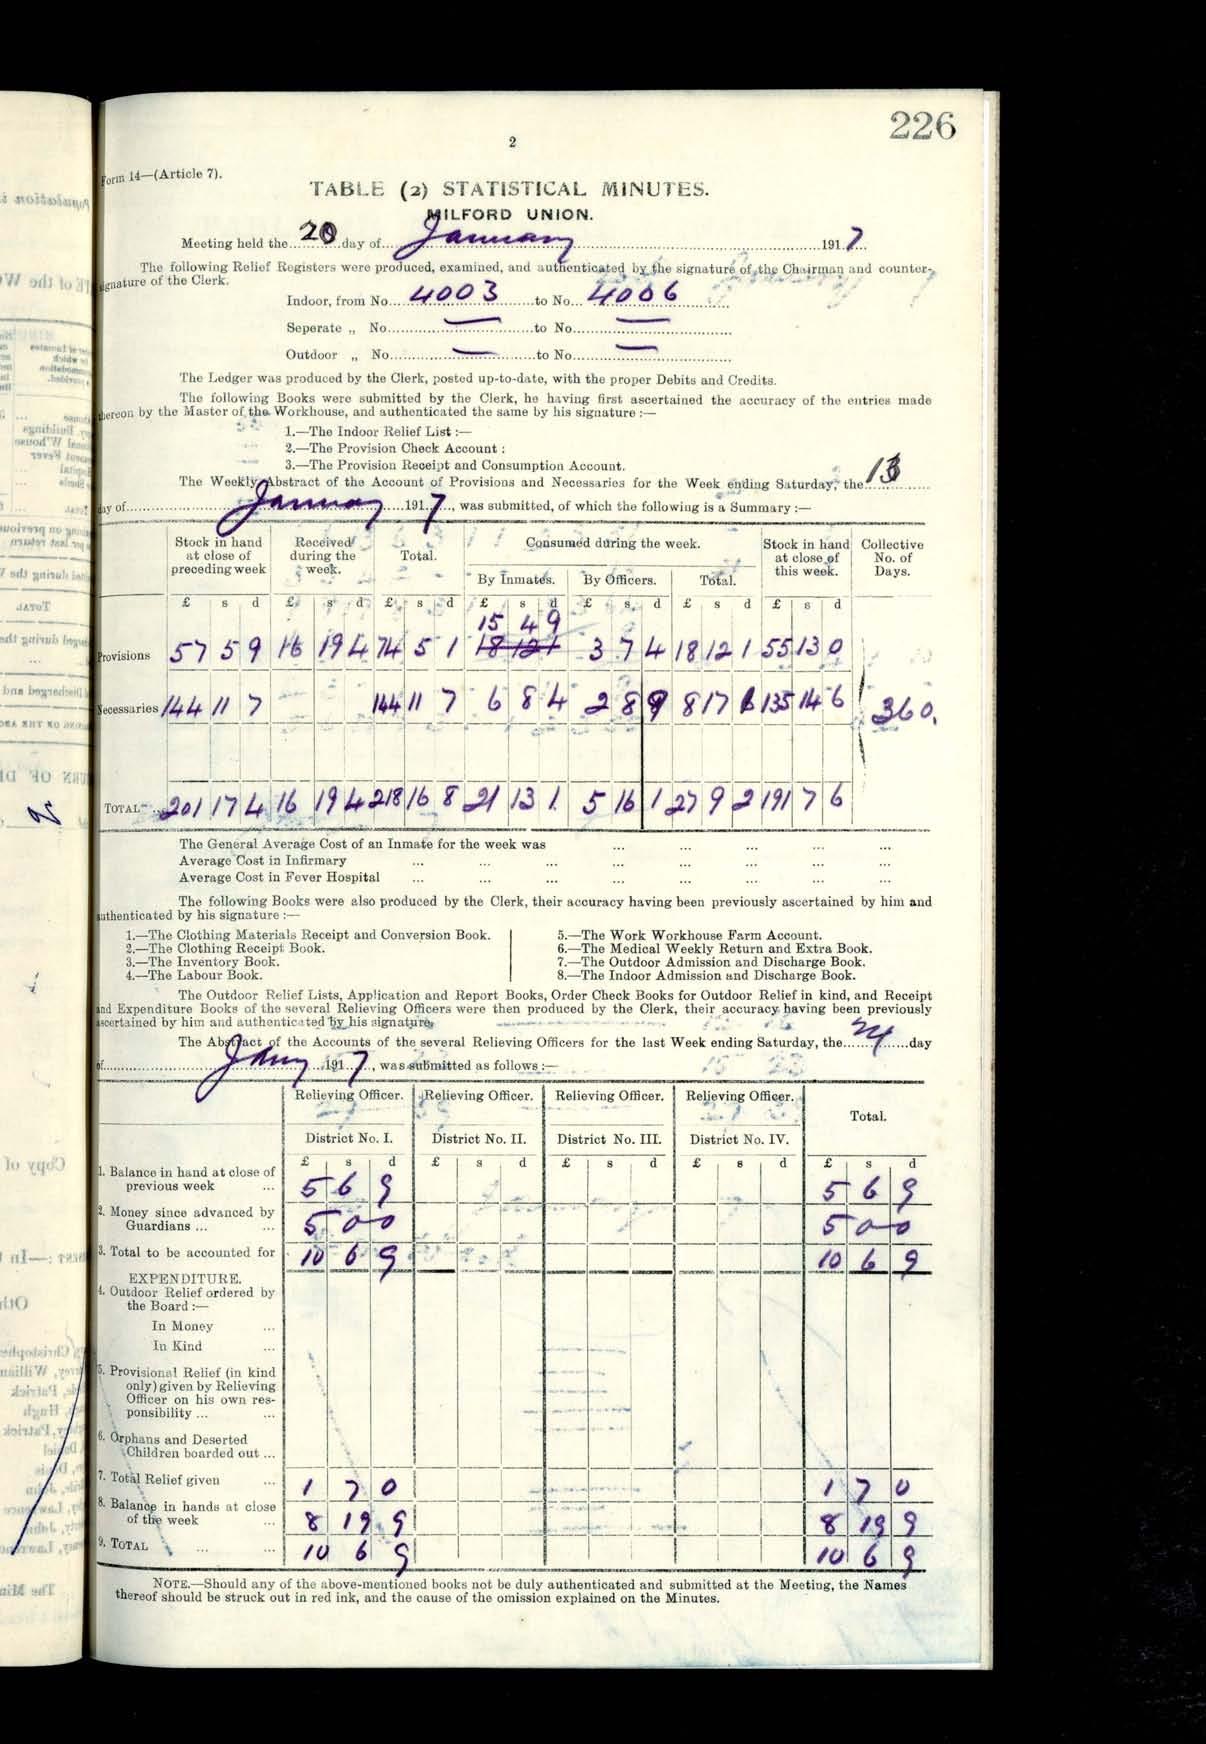 226
2
Form 14—(Article 7).
TABLE (2) STATISTICAL MINUTES.
MILFORD UNION.
Meeting held the 20 day of January 1917
The following Relief Registers were produced, examined, and authenticated by the signature of the Chairman and counter-
signature of the Clerk.
Indoor, from No. 4003 to No. 4006
Seperate „ No. — to No. —
Outdoor „ No. — to No. —
The Ledger was produced by the Clerk, posted up-to-date, with the proper Debits and Credits.
The following Books were submitted by the Clerk, he having first ascertained the accuracy of the entries made
thereon by the Master of the Workhouse, and authenticated the same by his signature :—
1.—The Indoor Relief List :—
2.—The Provision Check Account :
3.—The Provision Receipt and Consumption Account.
The Weekly Abstract of the Account of Provisions and Necessaries for the Week ending Saturday, the 13
day of January 1917, was submitted, of which the following is a Summary :—
Stock in hand at close of preceding week | Received during the week. | Total. | Consumed during the week. | Stock in hand at close of this week. | Collective No. of Days.
By Inmates. | By Officers. | Total.
£ s d £ s d £ s d £ s d £ s d £ s d £ s d
15 4 9
Provisions 57 5 9 16 19 4 74 5 1 18 12 1 3 7 4 18 12 1 55 13 0
Necessaries 144 11 7 144 11 7 6 8 4 2 8 9 8 17 1 135 14 6 360.
TOTAL 201 17 4 16 19 4 218 16 8 21 13 1 5 16 1 27 9 2 191 7 6
The General Average Cost of an Inmate for the week was ... ... ... ... ...
Average Cost in Infirmary ... ... ... ... ... ... ... ...
Average Cost in Fever Hospital ... ... ... ... ... ... ... ...
The following Books were also produced by the Clerk, their accuracy having been previously ascertained by him and
authenticated by his signature :—
1.—The Clothing Materials Receipt and Conversion Book.
2.—The Clothing Receipt Book.
3.—The Inventory Book.
4.—The Labour Book.
5.—The Work Workhouse Farm Account.
6.—The Medical Weekly Return and Extra Book.
7.—The Outdoor Admission and Discharge Book.
8.—The Indoor Admission and Discharge Book.
The Outdoor Relief Lists, Application and Report Books, Order Check Books for Outdoor Relief in kind, and Receipt
and Expenditure Books of the several Relieving Officers were then produced by the Clerk, their accuracy having been previously
ascertained by him and authenticated by his signature.
The Abstract of the Accounts of the several Relieving Officers for the last Week ending Saturday, the day
of Jany 1917, was submitted as follows :—
Relieving Officer. | Relieving Officer. | Relieving Officer. | Relieving Officer. | Total.
District No. I. | District No. II. | District No. III. | District No. IV.
£ s d £ s d £ s d £ s d £ s d
1. Balance in hand at close of
previous week ... 5 6 9 5 6 9
2. Money since advanced by
Guardians ... ... 5 0 0 5 0 0
3. Total to be accounted for 10 6 9 10 6 9
EXPENDITURE.
4. Outdoor Relief ordered by
the Board :—
In Money ...
In Kind ...
5. Provisional Relief (in kind
only) given by Relieving
Officer on his own res-
ponsibility ... ...
6. Orphans and Deserted
Children boarded out ...
7. Total Relief given ... 1 7 0 1 7 0
8. Balance in hands at close
of the week ... 8 19 9 8 19 9
9. TOTAL ... ... 10 6 9 10 6 9
NOTE.—Should any of the above-mentioned books not be duly authenticated and submitted at the Meeting, the Names
thereof should be struck out in red ink, and the cause of the omission explained on the Minutes.